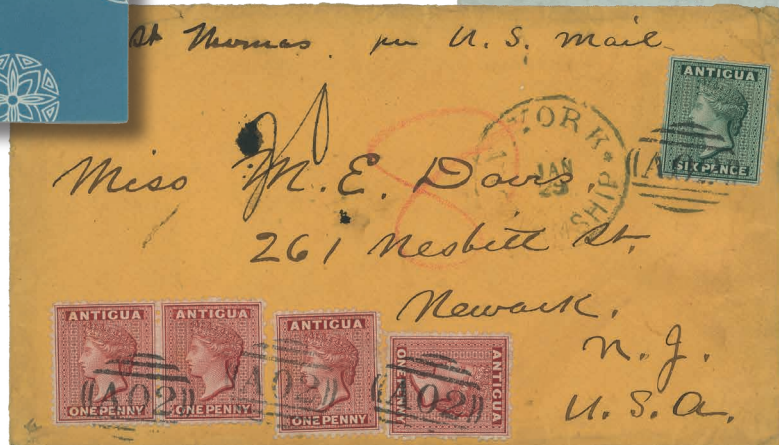 St Thomas. per U.S. Mail
ANTIGUA
SIX PENCE
A02
YORK
JAN
29
SHIP
8
Miss M. E. Davis
261 Nesbitt St.
Newark.
N. J.
U. S. A.
ANTIGUA
ONE PENNY
ANTIGUA
ONE PENNY
ANTIGUA
ONE PENNY
ANTIGUA
A02
A02
A02
A02